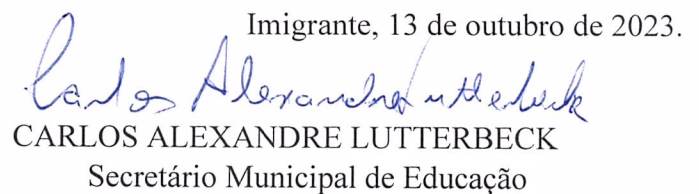 Imigrante, 13 de outubro de 2023.
Carlos Alexandre Lutterbeck
CARLOS ALEXANDRE LUTTERBECK
Secretário Municipal de Educação